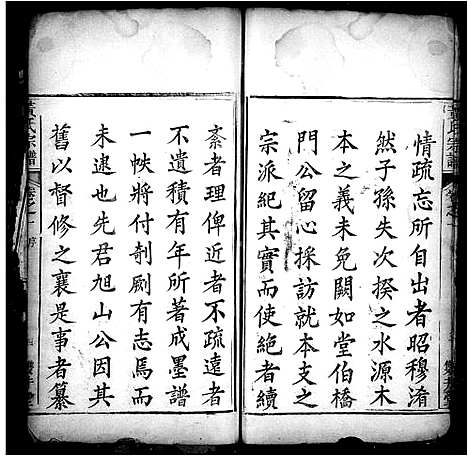 情疏忘所自出者昭穆淆
然子孫失次揆之水源木
本之義未免闕如堂伯橋
門公留心採訪就本支之
宗派紀其實而使絶者續
紊者理俾近者不疏遠者
不遺積有年所著成墨譜
一帙將付剞劂有志焉而
未逮也先君旭山公因其
舊以督修之襄是事者纂
氏宗譜
卷之一
序